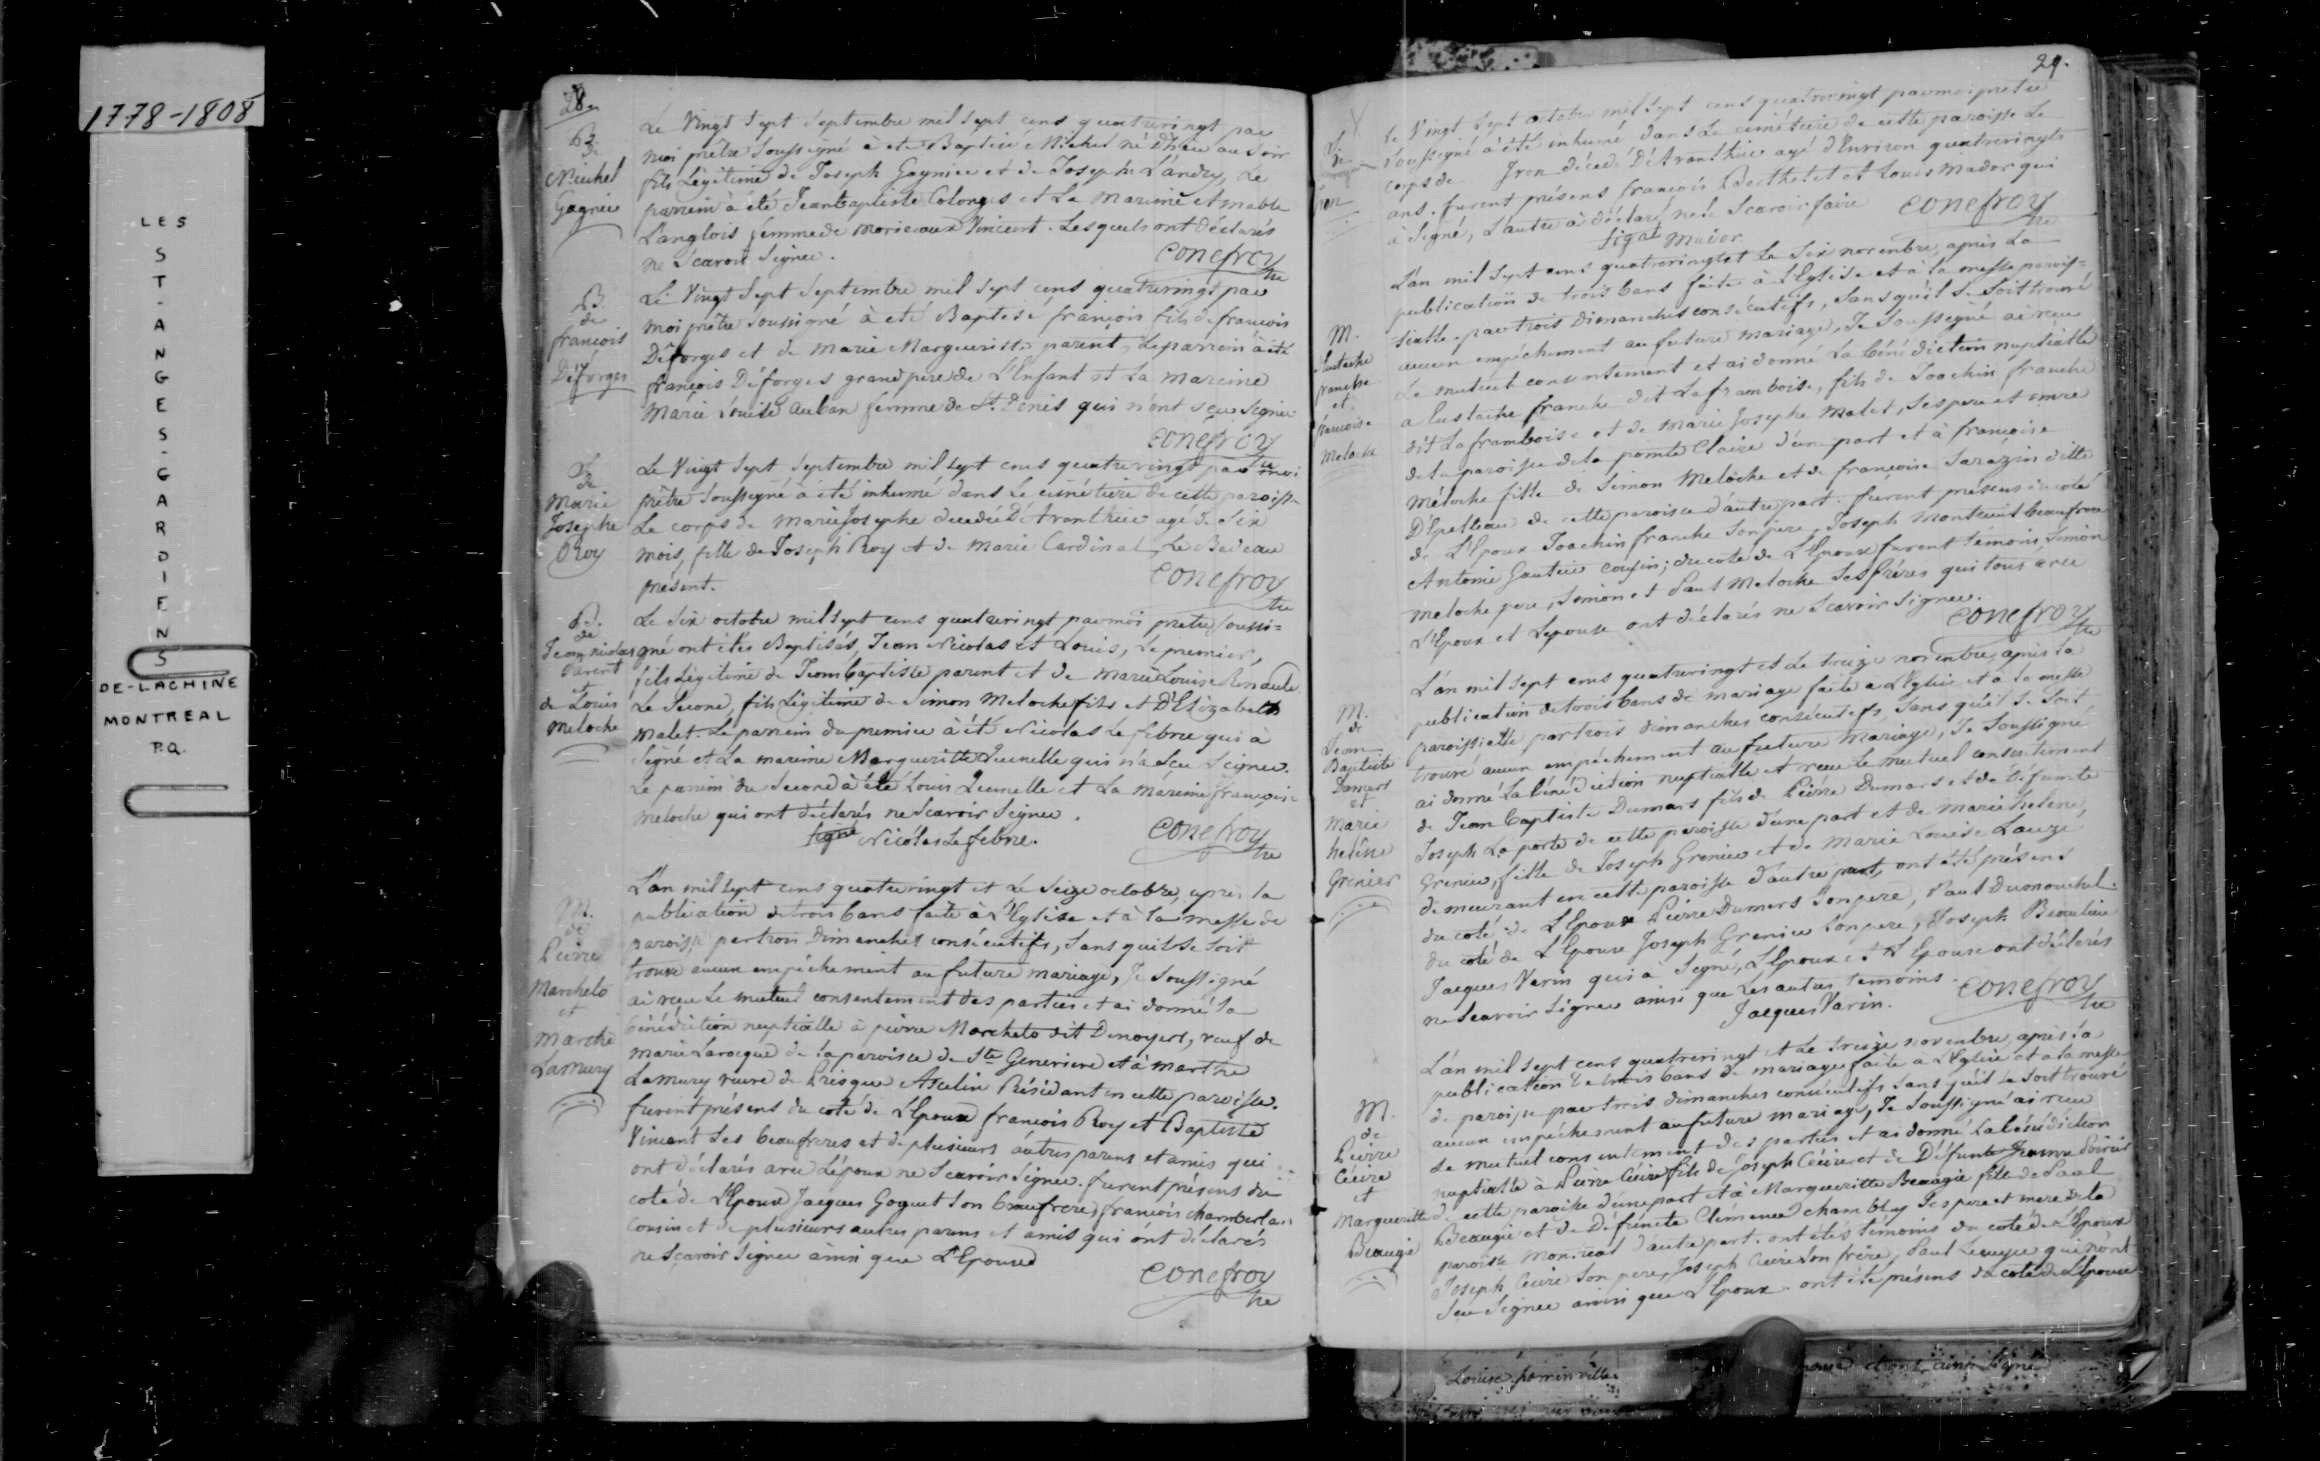 1778-1808
LES
ST-ANGES-GARDIENS
DE-LACHINE
MONTREAL
P.Q.
28.
B.
de
Michel
Gagnier
Le Vingt Sept Septembre mil sept cens quatrevingt par
moi prêtre Soussigné à eté Baptisé Michel né D'hier au Soir
fils Légitime de Joseph Gagnier et de Josephe Landry, Le
parrein à été Jeanbaptiste Colonges et La Mareine Amable
Langlois femme de Moriceaux Vincent. Lesquels ont Déclarés
ne Scavoir Signer.
Conefroy
ptre
B.
de
françois
Déforges
Le Vingt Sept Septembre mil sept cens quatrevingt par
moi prêtre soussigné à eté Baptisé françois fils de francois
Déforges et de Marie Margueritte parent, Le parrein à été
françois Déforges grand pere de L'Enfant et La Mareine
Marie Louise Auban femme de St. Denis qui n'ont sçu Signer
Conefroy
ptre
S.
de
Marie
Josephe
Roy
Le Vingt Sept Septembre mil sept cens quatrevingt par moi
prêtre Soussigné à été inhumé dans Le cimétiere de cette paroisse
Le corps de Marie Josephe decedée D'Avanthier agé de Six
mois, fille de Joseph Roy et de Marie Cardinal, Le Bedeau
présent.
Conefroy
ptre
B.
de
Jean nicolas
Parent
et
de Louis
Meloche
Le Six octobre mil sept cens quatrevingt par moi pretre soussi=
gné ont étés Baptisés, Jean Nicolas et Louis, Le premier,
fils Légitime de Jeanbaptiste parent et de Marie Louise Renault
Le Second, fils Légitime de Simon Meloche fils et D'Elizabeth
Malet. Le parrein du premier à été Nicolas Le febvre qui à
Signé et La mareine Margueritte Quenelle qui n'a Sçu Signer.
Le parrein du Second à été Louis Quenelle et La mareine françoise
Meloche qui ont déclarés ne Scavoir Signer.
signé Nicolas Lefebvre.
Conefroy
ptre
M.
de
Pierre
Marcheto
et
Marthe
Lamury
L'an mil sept cens quatrevingt et Le Seize octobre, apres la
publication de trois bans faite à L'Eglise et à la messe de
paroisse par trois Dimanches consécutifs, Sans quil Se Soit
trouvé aucun empéchement au future mariage, Je Soussigné
ai reçu Le mutuel consentement des parties et ai donné la
bénédiction nuptialle à pierre Marcheto dit Denoyers, veuf de
Marie Larocque de la paroisse de Ste Genevieve et à Marthe
Lamury veuve de Prisque Aselin Résidant en cette paroisse.
furent présens du coté de L'Epoux françois Roy et Baptiste
Vincent Ses beaufreres et de plusieurs autres parens et amis qui
ont déclarés avec L'époux ne Scavoir Signer. furent présens du
coté de L'Epouse Jacques Goguet Son beaufrere, françois chamberlan
Cousin et de plusieurs autres parens et amis qui ont déclarés
ne Scavoir Signer ainsi que L'Epouse
Conefroy
ptre
29.
S.
de
Le Vingt Sept octobre mil sept cens quatrevingt par moi pretre
Soussigné à été inhumé dans Le cimétiere de cette paroisse Le
corps de Jron décedé D'Avanthier agé d'Environ quatrevingts
ans. furent présens francois Berthelet et Louis Mador qui
à Signé, L'autre à déclaré ne le Scavoir faire
signé Mador
Conefroy
ptre
M.
Eustache
franche
et
francoise
Meloche
L'an mil sept cens quatrevingt et Le Six novembre, après La
publication de trois bans faite à L'Eglise et à la messe parois=
sialle, par trois Dimanches consécutifs, Sans qu'il Se Soit trouvé
aucun empéchement au future mariage, Je Soussigné ai reçu
Le mutuel consentement et ai donné La bénédiction nuptialle
a Eustache franche dit Laframboise, fils de Joachin franche
dit Laframboise et de Marie Josephe Malet, Ses pere et mere
de la paroisse de la pointe Claire d'une part et à francoise
Méloche fille de Simon Meloche et de françoise Sarázin ditte
D'Epelteau de cette paroisse d'autre part. furent présens du coté
de L'Epoux Joachin franche Son pere, Joseph Montreuil beaufrere
Antoine Gautier cousin; du coté de L'Epouse furent témoins, Simon
Meloche pere, Simon et Paul Meloche Ses fréres qui tous avec
L'Epoux et Lepouse ont déclarés ne Scavoir Signer.
Conefroy
ptre
M.
de
Jean
Baptiste
Dumart
et
Marie
helene
Grenier
L'an mil sept cens quatrevingt et Le treize novembre, après la
publication de trois bans de mariage faite a L'Eglise et à la messe
paroissialle par trois dimanches consécutifs, Sans qu'il Se Soit
trouvé aucun empéchement au future mariage, Je Soussigné
ai donné La bénédiction nuptialle et reçu Le mutuel consentiment
de Jean baptiste Dumars fils de Pierre Dumars et de Défunte
Joseph La porte de cette paroisse d'une part et de Marie helene
Grenier, fille de Joseph Grenier et de Marie Louise Lauze
demeurant en cette paroisse d'autre part, ont été présens
du coté de L'Epoux Pierre Dumars Son pere, Paul Dumouchel.
du coté de L'Epouse Joseph Grenier Son pere, Joseph Beaulieu
Jacques Varin qui à Signé, L'Epoux et L'Epouse ont déclarés
ne Scavoir Signer ainsi que Les autres temoins.
Jacques Varin.
Conefroy
ptre
M.
de
Pierre
Céüre
et
Margueritte
Beaugie
L'an mil sept cens quatrevingt et Le treize novembre, après la
publication de trois bans de mariage faite à L'Eglise et à la messe
de paroisse par trois dimanches consécutifs Sans qu'il Se Soit trouvé
aucun empéchement au future mariage, Je Soussigné ai reçu
Le mutuel consentement des parties et ai donné La bénédiction
nuptialle à Pierre Céüre fils de Joseph Céüre et de Défunte Jeanne Poirier
de cette paroisse d'une part et à Margueritte Beaugie fille de Paul
Beaugie et de Défunte Clémence chambly Ses pere et mere de la
paroisse Montréal d'autre part. ont étés témoins du coté de L'Epoux
Joseph Céüre Son pere, Joseph Céüre Son frère, Paul Lecuyer qui n'ont
Sçu Signer ainsi que L'Epoux. ont été présens du coté de L'Epouse
Louise pominville
Epouse et ont ainsi Signé